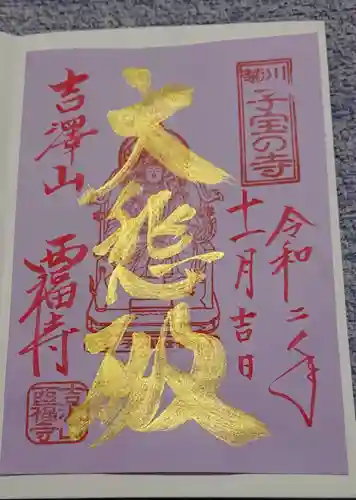 菊川
子宝の寺
令和二年
十一月吉日
大悲殿
吉澤山
西福寺
西福寺